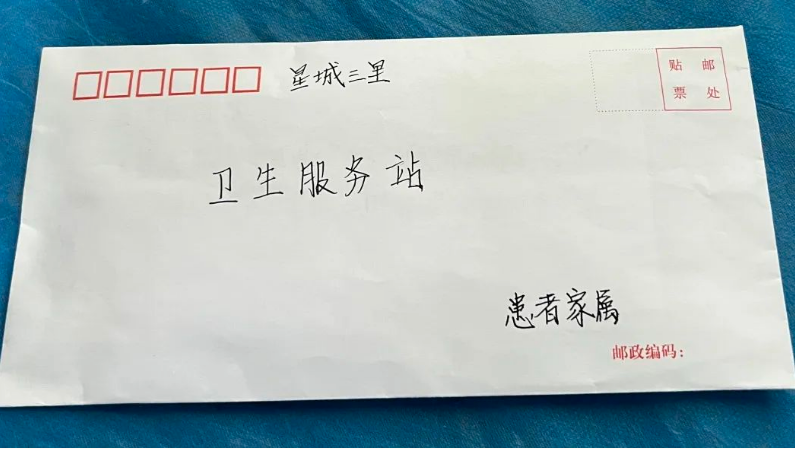 星城三里
贴 邮
票 处
卫生服务站
患者家属
邮政编码：